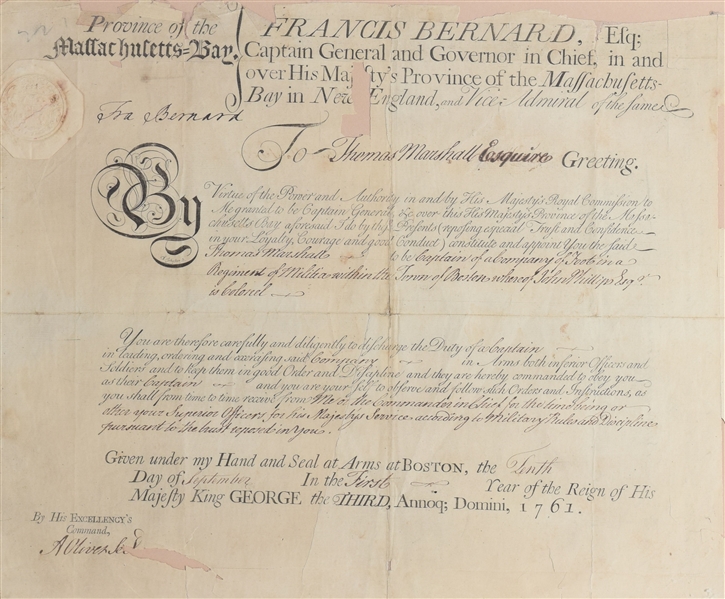 Province of the
Massachusetts-Bay.
FRANCIS BERNARD, Esq;
Captain General and Governor in Chief, in and
over His Majesty's Province of the Massachusetts-
Bay in New England, and Vice-Admiral of the same
Fra Bernard
To Thomas Marshall Esquire Greeting.
By
Virtue of the Power and Authority in and by His Majesty's Royal Commission to
Me granted to be Captain General, &c. over this His Majesty's Province of the Massa-
chusetts Bay aforesaid I do by these Presents (reposing especial Trust and Confidence
in your Loyalty, Courage and good Conduct) constitute and appoint You the said
Thomas Marshall to be Captain of a Company of Foot in a
Regiment of Militia within the Town of Boston whereof John Phillips Esqr.
is Colonel
You are therefore carefully and diligently to discharge the Duty of a Captain
in leading, ordering and exercising said Company in Arms both inferior Officers and
Soldiers and to keep them in good Order and Discipline and they are hereby commanded to obey you
as their Captain and you are your self to observe and follow such Orders and Instructions, as
you shall from time to time receive from Me or the Commander in Chief for the time being or
other your Superior Officers for his Majestys Service according to Military Rules and Discipline
pursuant to the trust reposed in You.
Given under my Hand and Seal at Arms at BOSTON, the Tenth
Day of September In the First Year of the Reign of His
Majesty King GEORGE the THIRD, Annoq; Domini, 1761.
By His EXCELLENCY's
Command,
A Oliver